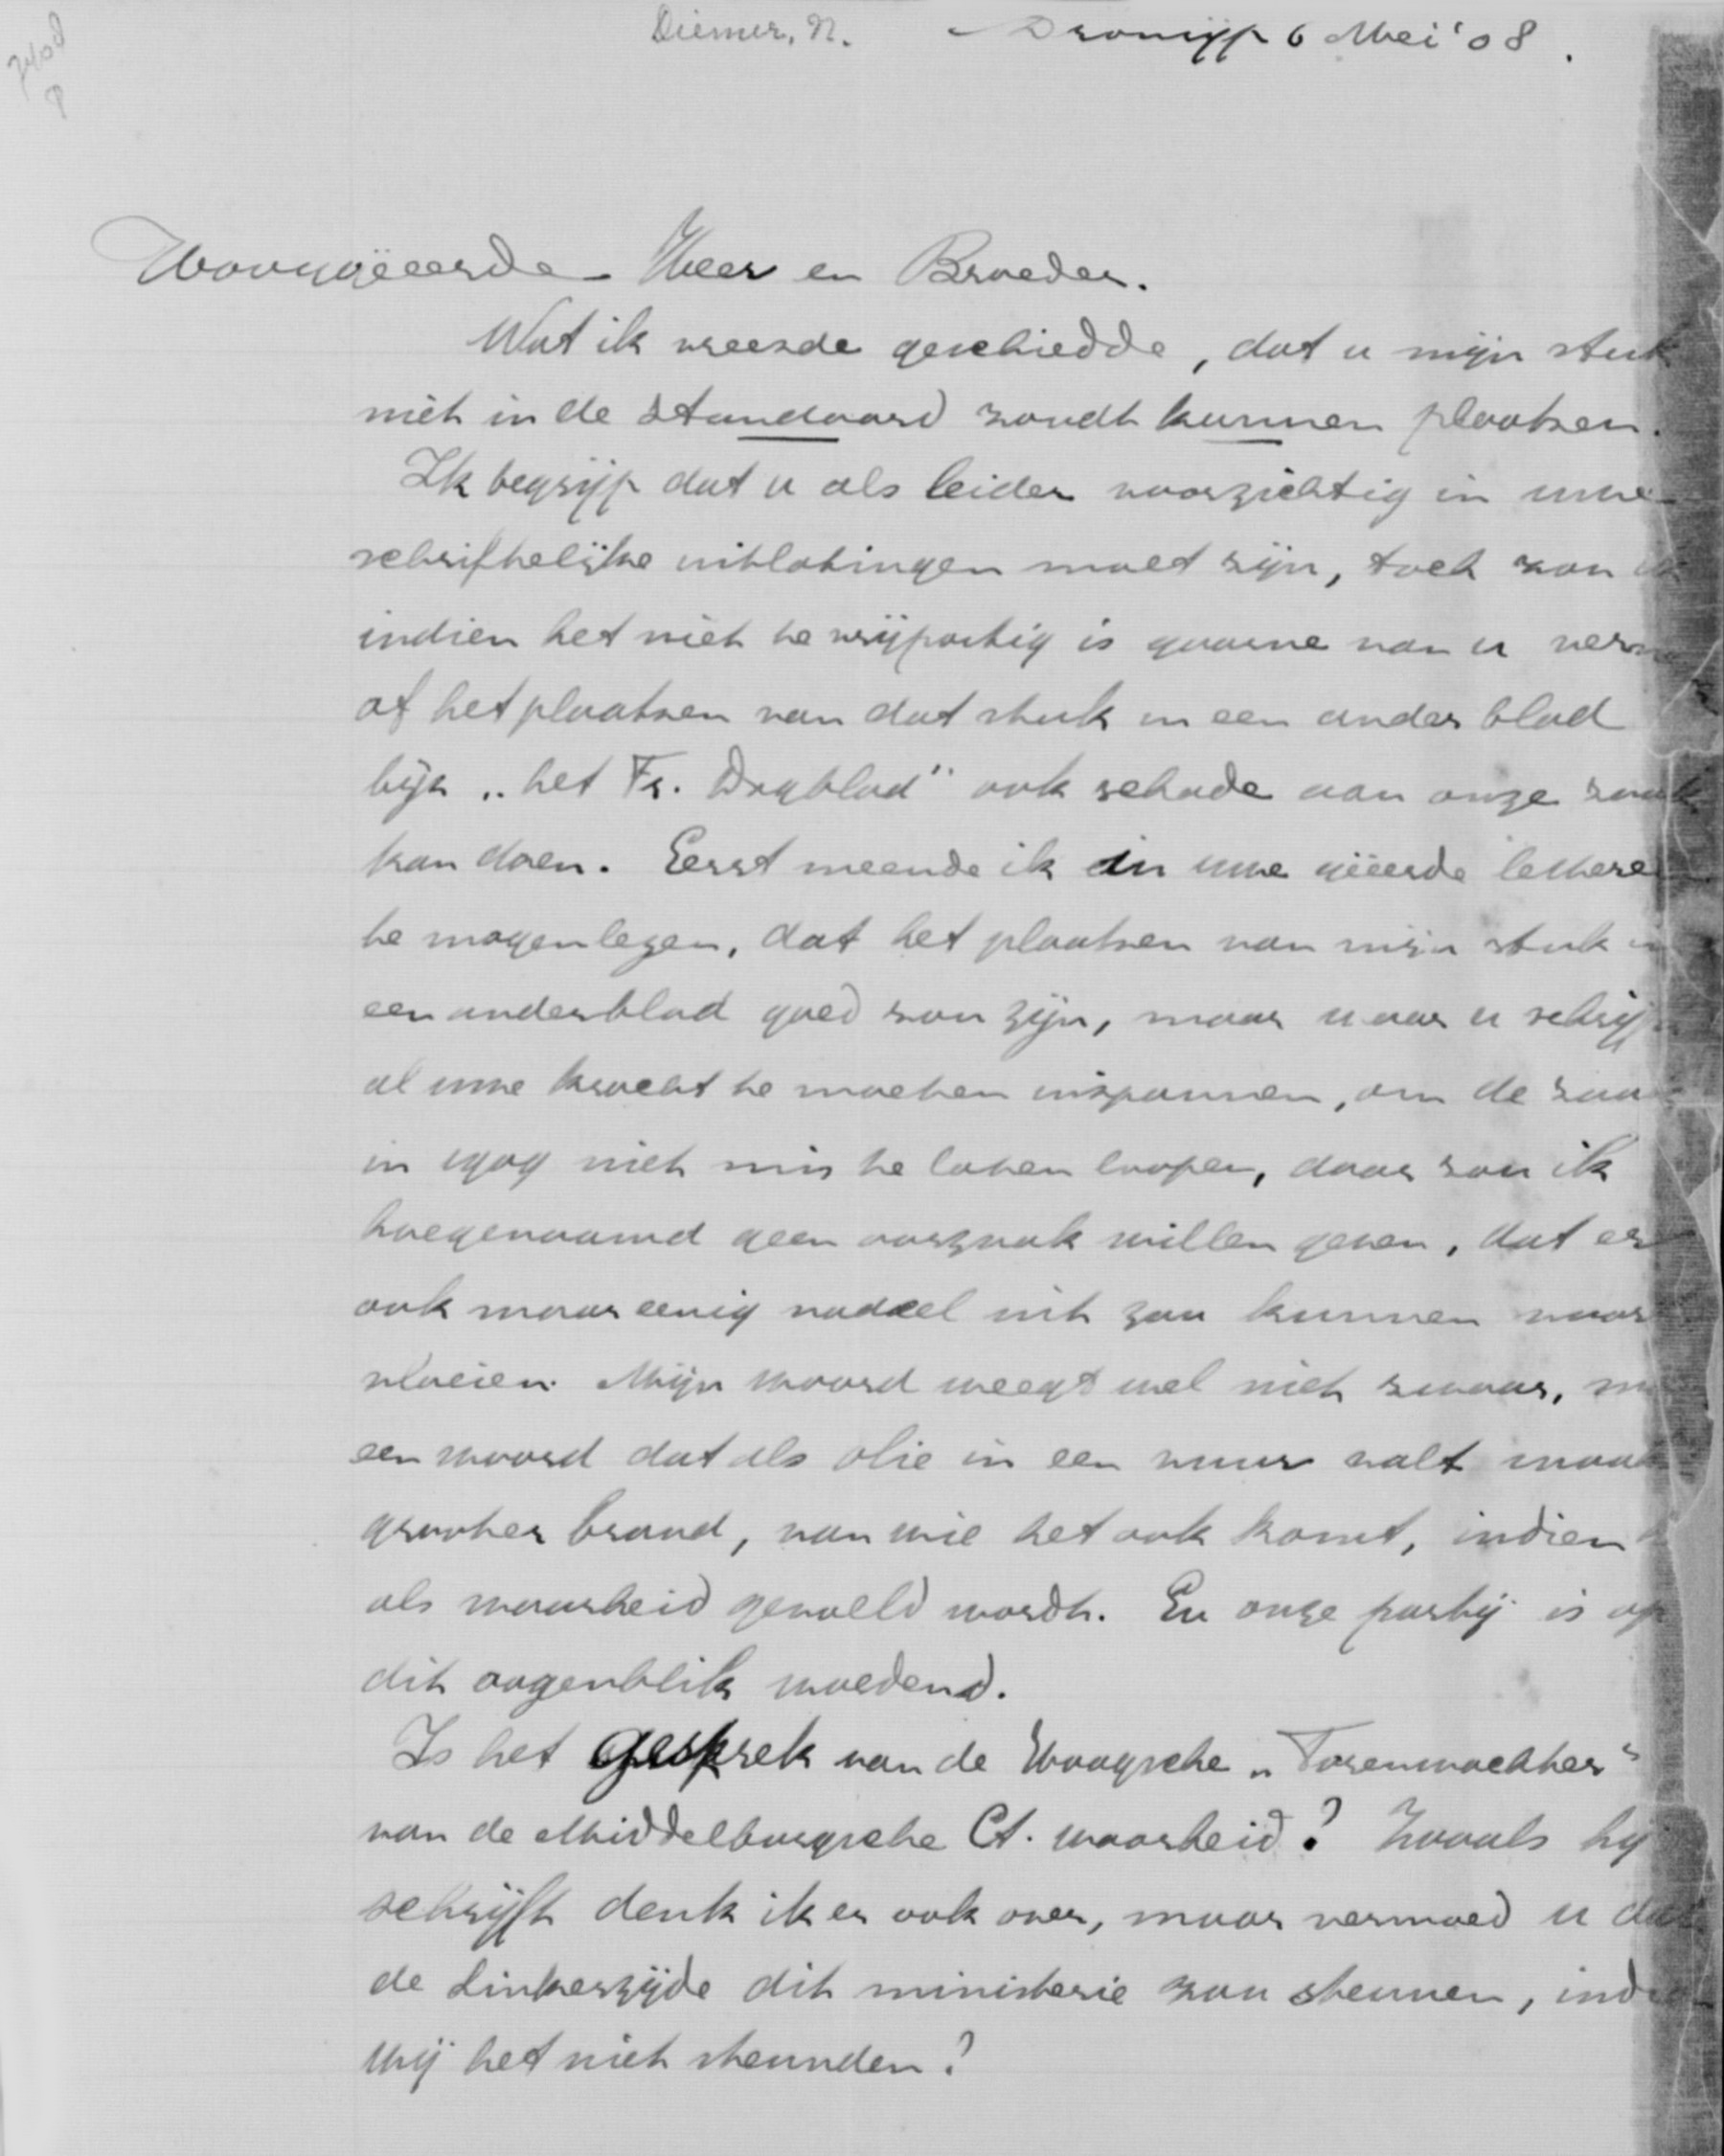 7408
Diemer, N. Dronrijp 6 Mei '08.
Hooggëeerde Heer en Broeder.
Wat ik vreesde geschiedde, dat u mijn stuk
niet in de Standaard zoudt kunnen plaatsen.
Ik begrijp dat u als leider voorzichtig in uwe
schriftelijke uitlatingen moet zijn, toch zou ik
indien het niet te vrijpostig is gaarne van u
of het plaatsen van dat stuk in een ander blad
bijv. „het Fr. Dagblad" ook schade aan onze zaak
kan doen. Eerst meende ik in uwe gëeerde letteren
te mogen lezen, dat het plaatsen van mijn stuk in
een ander blad goed zou zijn, maar waar u schrijft
al uwe kracht te moeten inspannen, om de zaak
in 1909 niet mis te laten loopen, daar zou ik
hoegenaamd geen oorzaak willen geven, dat er
ook maar eenig nadeel uit zou kunnen voor
vloeien. Mijn woord weegt wel niet zwaar,
een woord dat als olie in een vuur valt maakt
grooter brand, van wie het ook komt, indien
als waarheid gevoeld wordt. En onze partij is op
dit oogenblik woedend.
Is het gesprek van de Haagsche „Torenwachter"
van de Middelburgsche Ct. waarheid? Zooals hij
schrijft denk ik er ook over, maar vermoed u dat
de Linkerzijde dit ministerie zou steunen, indien
wij het niet steunden?